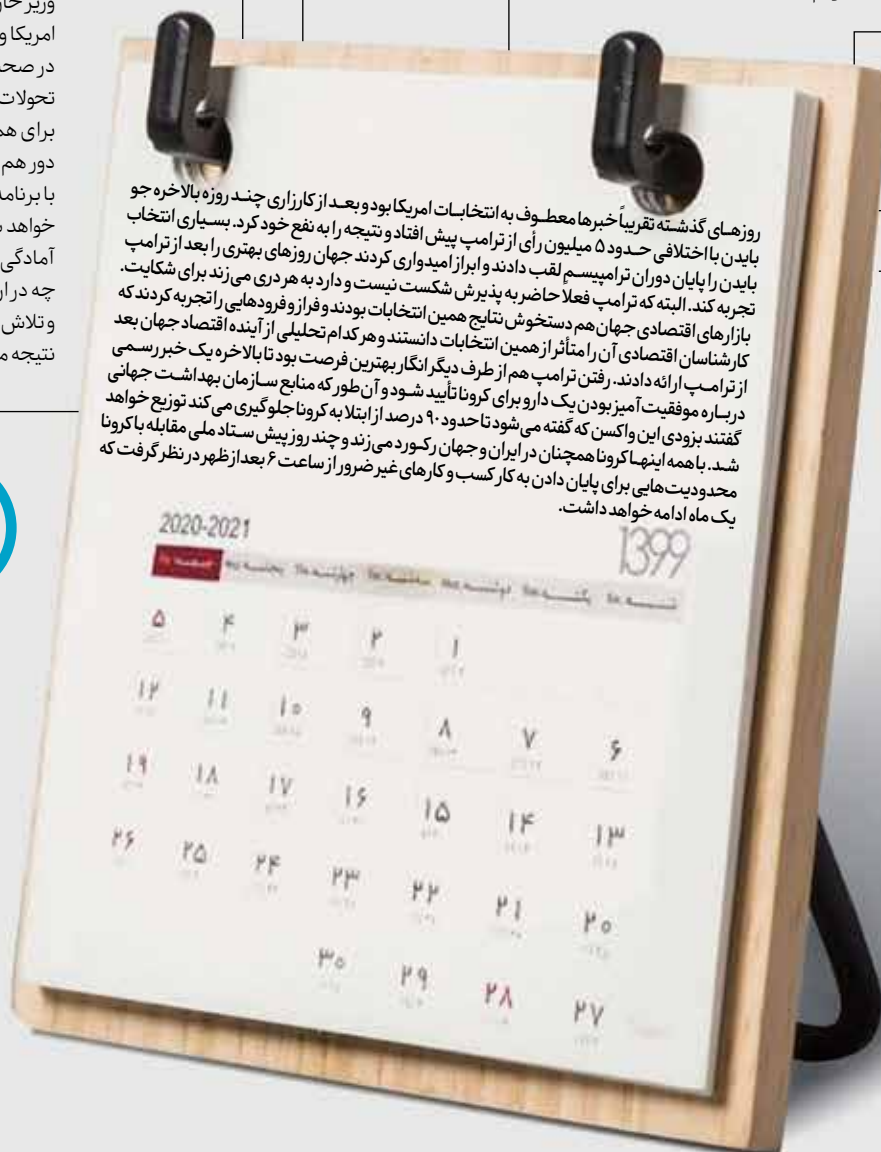 وزیر خار
امریکا و
در صح
تحولات
برای هم
دور هم
با برنامه
خواهد
آمادگی
چه در ار
و تلاش
نتیجه م
روزهای گذشته تقریباً خبرها معطوف به انتخابات امریکا بود و بعد از کارزاری چند روزه بالاخره جو
بایدن با اختلافی حدود ۵ میلیون رأی از ترامپ پیش افتاد و نتیجه را به نفع خود کرد. بسیاری انتخاب
بایدن را پایان دوران ترامپیسم لقب دادند و ابراز امیدواری کردند جهان روزهای بهتری را بعد از ترامپ
تجربه کند. البته که ترامپ فعلاً حاضر به پذیرش شکست نیست و دارد به هر دری می‌زند برای شکایت.
بازارهای اقتصادی جهان هم دستخوش نتایج همین انتخابات بودند و فراز و فرودهایی را تجربه کردند که
کارشناسان اقتصادی آن را متأثر از همین انتخابات دانستند و هر کدام تحلیلی از آینده اقتصاد جهان بعد
از ترامپ ارائه دادند. رفتن ترامپ هم از طرف دیگر انگار بهترین فرصت بود تا بالاخره یک خبر رسمی
درباره موفقیت آمیز بودن یک دارو برای کرونا تأیید شود و آن طور که منابع سازمان بهداشت جهانی
گفتند بزودی این واکسن که گفته می‌شود تا حدود ۹۰ درصد از ابتلا به کرونا جلوگیری می‌کند توزیع خواهد
شد. با همه اینها کرونا همچنان در ایران و جهان رکورد می‌زند و چند روز پیش ستاد ملی مقابله با کرونا
محدودیت‌هایی برای پایان دادن به کار کسب و کارهای غیر ضرور از ساعت ۶ بعد از ظهر در نظر گرفت که
یک ماه ادامه خواهد داشت.
1399 2020-2021
شنبه یکشنبه دوشنبه سه‌شنبه چهارشنبه پنجشنبه جمعه
۱ ۲ ۳ ۴ ۵
۶ ۷ ۸ ۹ ۱۰ ۱۱ ۱۲
۱۳ ۱۴ ۱۵ ۱۶ ۱۷ ۱۸ ۱۹
۲۰ ۲۱ ۲۲ ۲۳ ۲۴ ۲۵ ۲۶
۲۷ ۲۸ ۲۹ ۳۰